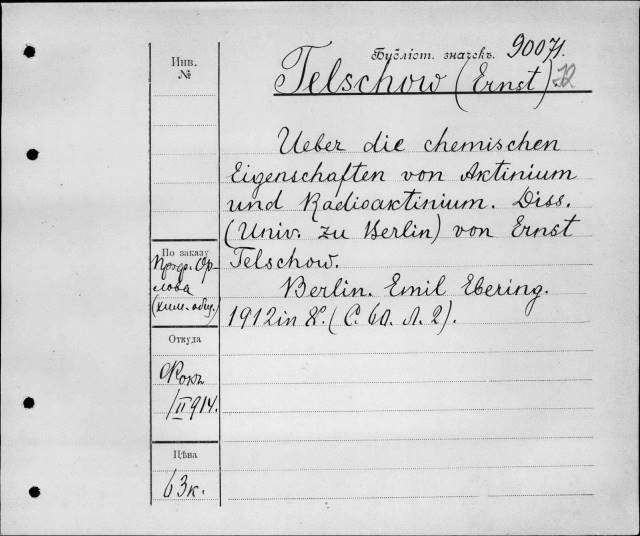 Бубліот. значекъ. 90071.
Инв.
№
Telschow (Ernst). 72
Ueber die chemischen
Eigenschaften von Aktinium
und Radioaktinium. Diss.
(Univ. zu Berlin) von Ernst
Telschow.
Berlin. Emil Ebering.
1912 in 8°. (С. 60. Л. 2).
По заказу
Проф. Ор-
лова
(хим. общ.)
Откуда
Фокъ
1/II 914.
Цѣна
63 к.